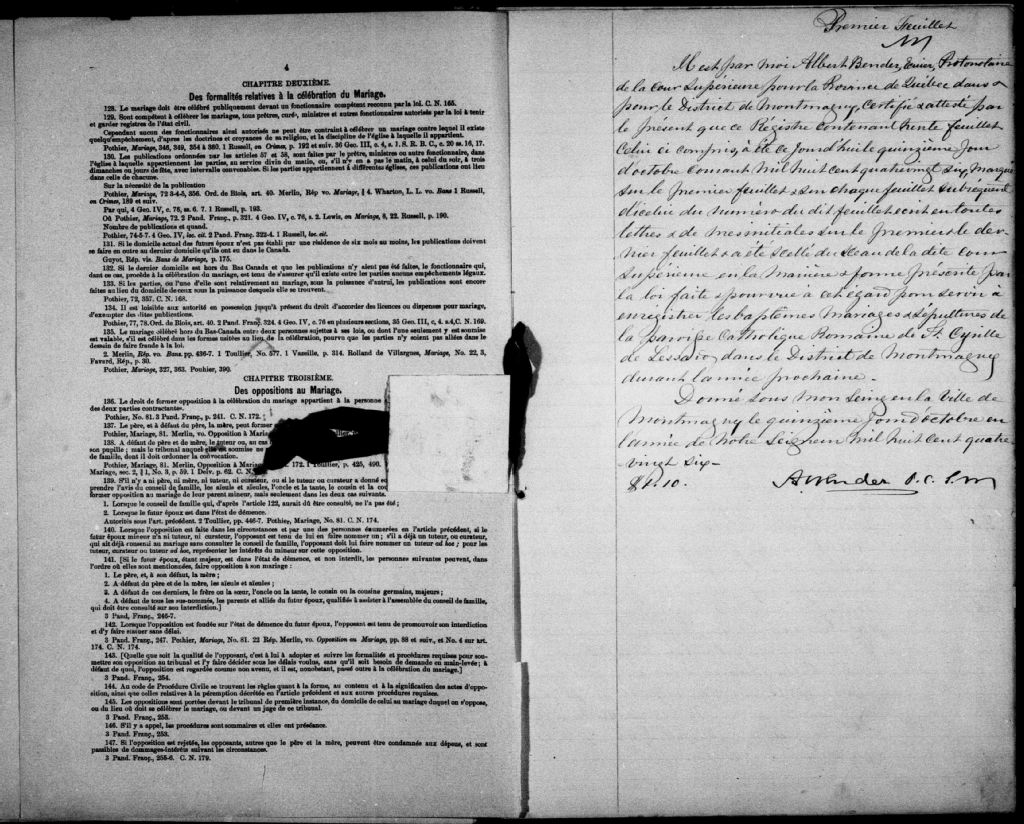 4
CHAPITRE DEUXIÈME.
Des formalités relatives à la célébration du Mariage.
128. Le mariage doit être célébré publiquement devant un fonctionnaire compétent reconnu par la loi. C. N. 165.
129. Sont compétents à célébrer les mariages, tous prêtres, curés, ministres et autres fonctionnaires autorisés par la loi à tenir
et garder registres de l'état civil.
Cependant aucun des fonctionnaires ainsi autorisés ne peut être contraint à célébrer un mariage contre lequel il existe
quelqu'empêchement, d'après les doctrines et croyances de sa religion, et la discipline de l'église à laquelle il appartient.
Pothier, Mariage, 346, 349, 354 à 360. 1 Russell, on Crimes, p. 192 et suiv. 36 Geo. III, c. 4, s. 1. S. R. B. C., c. 20 ss. 16, 17.
130. Les publications ordonnées par les articles 57 et 58, sont faites par le prêtre, ministre ou autre fonctionnaire, dans
l'église à laquelle appartiennent les parties, au service divin du matin, ou, s'il n'y en a pas le matin, à celui du soir, à trois
dimanches ou jours de fête, avec intervalle convenable. Si les parties appartiennent à différentes églises, ces publications ont lieu
dans celle de chacune.
Sur la nécessité de la publication
Pothier, Mariage, 72 3-4-5, 356. Ord. de Blois, art. 40. Merlin, Rép vo. Mariage, § 4. Wharton, L. L. vo. Bans 1 Russell,
on Crimes, 189 et suiv.
Par qui, 4 Geo. IV, c. 76, ss. 6. 7. 1 Russell, p. 193.
Où Pothier, Mariage, 72. 2 Pand. Franç., p. 321. 4 Geo. IV, c. 76, s. 2. Lewis, on Mariage, 8, 22. Russell, p. 190.
Nombre de publications et quand.
Pothier, 74-5-7. 4 Geo. IV, loc. cit. 2 Pand. Franç. 322-4. 1 Russell, loc. cit.
131. Si le domicile actuel des futurs époux n'est pas établi par une résidence de six mois au moins, les publications doivent
se faire en outre au dernier domicile qu'ils ont eu dans le Canada.
Guyot, Rép. vis. Bans de Mariage, p. 175.
132. Si le dernier domicile est hors du Bas Canada et que les publications n'y aient pas été faites, le fonctionnaire qui,
dans ce cas, procède à la célébration du mariage, est tenu de s'assurer qu'il existe entre les parties aucuns empêchements légaux.
133. Si les parties, ou l'une d'elle sont relativement au mariage, sous la puissance d'autrui, les publications sont encore
faites au lieu du domicile de ceux sous la puissance desquels elle se trouvent.
Pothier, 72, 357. C. N. 168.
134. Il est loisible aux autorité en possession jusqu'à présent du droit d'accorder des licences ou dispenses pour mariage,
d'exempter des dites publications.
Pothier, 77, 78. Ord. de Blois, art. 40. 2 Pand Franç. 324. 4 Geo. IV, c. 76 en plusieurs sections, 35 Geo. III, c, 4. s.4,C. N. 169.
135. Le mariage célébré hors du Bas-Canada entre deux personnes sujettes à ses lois, ou dont l'une seulement y est soumise
est valable, s'il est célébré dans les formes usitées au lieu de la célébration, pourvu que les parties n'y soient pas allées dans le
dessein de faire fraude à la loi.
2. Merlin, Rép. vo. Bans. pp. 436-7. 1 Toullier, No. 577. 1 Vazeille, p. 314. Rolland de Villargues, Mariage, No. 22, 3,
Favard, Rép., p. 30.
Pothier, Mariage, 327, 363. Pouhier, 390.
CHAPITRE TROISIÈME.
Des oppositions au Mariage.
136. Le droit de former opposition à la célébration du mariage appartient à la personne
des deux parties contractantes.
Pothier, No. 81. 3 Pand. Franç., p. 241. C. N. 172.
137. Le père et, à défaut du père, la mère, peut former
Pothier, Mariage, 81. Merlin, vo. Opposition à Maria
138. A défaut de père et de mère, le tuteur ou, au cas
son pupille; mais le tribunal auquel elle est soumise ne
famille, dont il doit ordonner la convocation.
Pothier, Mariage, 81. Merlin, Opposition à Mariage 172. 1 Toullier, p. 425, 490.
Mariage, sec. 2, § 1, No. 3, p. 59. 1 Delv. p. 62. C. N.
139. S'il n'y a ni père, ni mère, ni tuteur, ni curateur, ou si le tuteur ou curateur a donné
prendre l'avis du conseil de famille, les aïeuls et aïeules, l'oncle et la tante, le cousin et la cou
former opposition au mariage de leur parent mineur, mais seulement dans les deux cas suivants.
1. Lorsque le conseil de famille qui, d'après l'article 122, aurait dû être consulté, ne l'a pas été;
2. Lorsque le futur époux est dans l'état de démence.
Autorités sous l'art. précédent. 2 Toullier, pp. 446-7. Pothier, Mariage, No. 81. C. N. 174.
140. Lorsque l'opposition est faite dans les circonstances et par une des personnes énumérées en l'article précédent, si le
futur époux mineur n'a ni tuteur, ni curateur, l'opposant est tenu de lui en faire nommer un; s'il a déjà un tuteur, ou curateur,
qui ait déjà consenti au mariage sans consulter le conseil de famille, l'opposant doit lui faire nommer un tuteur ad hoc; pour les
tuteur, curateur ou tuteur ad hoc, représenter les intérêts du mineur sur cette opposition.
141. [Si le futur époux, étant majeur, est dans l'état de démence, et non interdit, les personnes suivantes peuvent, dans
l'ordre où elles sont mentionnées, faire opposition à son mariage:
1. Le père, et, à son défaut, la mère;
2. A défaut du père et de la mère, les aïeuls et aïeules;
3. A défaut de ces derniers, le frère ou la sœur, l'oncle ou la tante, le cousin ou la cousine germains, majeurs;
4. A défaut de tous les sus-nommés, les parents et alliés du futur époux, qualifiés à assister à l'assemblée du conseil de famille,
qui doit être consulté sur son interdiction.]
3 Pand. Franç., 246-7.
142. Lorsque l'opposition est fondée sur l'état de démence du futur époux, l'opposant est tenu de promouvoir son interdiction
et d'y faire statuer sans délai.
3 Pand. Franç., 247. Pothier, Mariage, No. 81. 22 Rép. Merlin, vo. Opposition au Mariage, pp. 88 et suiv., et No. 4 sur art.
174. C. N. 174.
143. [Quelle que soit la qualité de l'opposant, c'est à lui à adopter et suivre les formalités et procédures requises pour sou-
mettre son opposition au tribunal et l'y faire décider sous les délais voulus, sans qu'il soit besoin de demande en main-levée; à
défaut de quoi, l'opposition est regardée comme non avenu, et il est, nonobstant, passé outre à la célébration du mariage.]
3 Pand. Franç., 254.
144. Au code de Procédure Civile se trouvent les règles quant à la forme, au contenu et à la signification des actes d'oppo-
sition, ainsi que celles relatives à la péremption décrétée en l'article précédent et aux autres procédures requises.
145. Les oppositions sont portées devant le tribunal de première instance, du domicile de celui au mariage duquel on s'oppose,
ou du lieu où doit se célébrer le mariage, ou devant un juge de ce tribunal.
3 Pand. Franç., 253.
146. S'il y a appel, les procédures sont sommaires et elles ont préséance.
3 Pand. Franç., 253.
147. Si l'opposition est rejetée, les opposants, autres que le père et la mère, peuvent être condamnés aux dépens, et sont
passibles de dommages-intérêts suivant les circonstances.
3 Pand. Franç., 255-6. C. N. 179.
Premier Feuillet
Il est par moi Albert Bender, Ecuier, Protonotaire
de la Cour Supérieure pour la Province de Québec dans &
pour le District de Montmagny, Certifié & attesté par
le présent que ce Régistre contenant trente feuillets
Celui ci compris, a été ce jourd'hui le quinzième jour
d'octobre courant mil huit cent quatrevingt six Marqué
sur le premier feuillet & sur chaque feuillet subséquent
d'icelui du numéro du dit feuillet écrit en toutes
lettres & de mes initiales sur le premier & le der-
nier feuillet & a été scellé du sceau de la dite cour
Supérieure en la manière & forme présente par
la loi faite & pourvue à cet égard pour servir à
enregistrer les baptêmes Mariages & Sépultures de
la paroisse Catholique Romaine de St. Cyrille
de Lessard, dans le District de Montmagny
durant l'année prochaine.
Donné sous mon seing en la Ville de
Montmagny le quinzième jour d'octobre en
l'année de Notre Seigneur Mil huit cent quatre
vingt six-
$1.10. A. Bender P. C. S. M